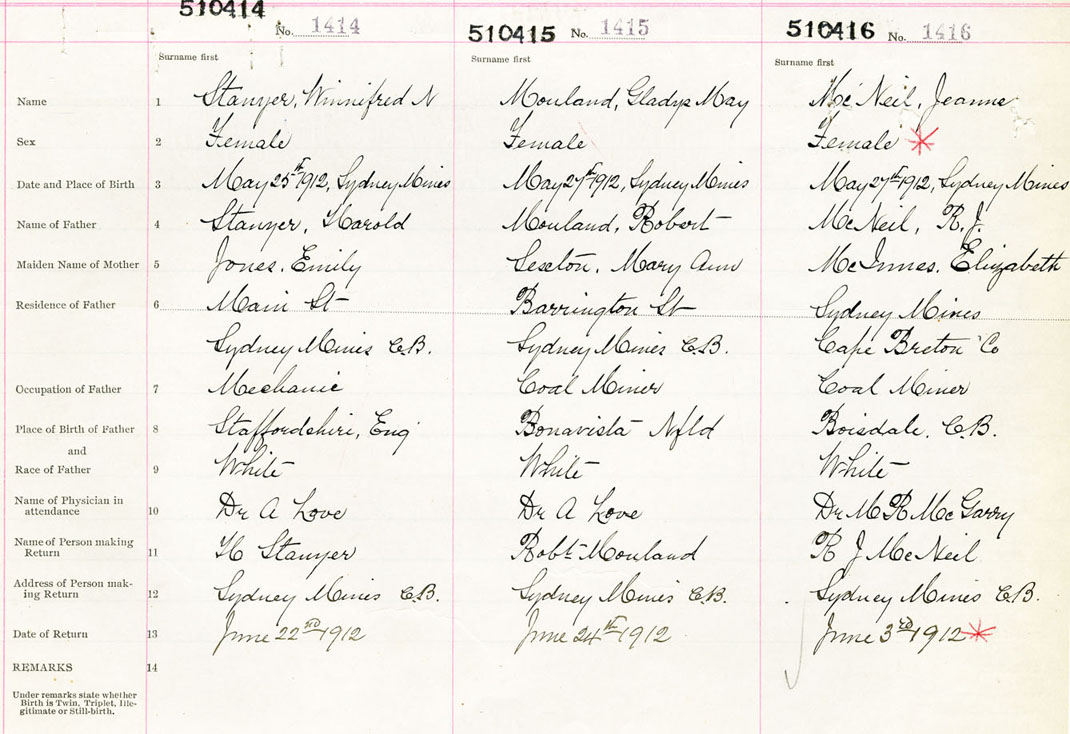 510414 No. 1414 510415 No. 1415 510416 No. 1416
Surname first Surname first Surname first
Name 1 Stanyer, Winnifred N Mouland, Gladys May Mc Neil, Jeanne
Sex 2 Female Female Female *
Date and Place of Birth 3 May 25th 1912, Sydney Mines May 27th 1912, Sydney Mines May 27th 1912, Sydney Mines
Name of Father 4 Stanyer, Harold Mouland, Robert McNeil, R. J.
Maiden Name of Mother 5 Jones, Emily Sexton, Mary Ann McInnes, Elizabeth
Residence of Father 6 Main St Barrington St Sydney Mines
Sydney Mines C.B. Sydney Mines C.B. Cape Breton Co
Occupation of Father 7 Mechanic Coal Miner Coal Miner
Place of Birth of Father 8 Staffordshire, Eng Bonavista Nfld Boisdale, C.B.
and
Race of Father 9 White White White
Name of Physician in
attendance 10 Dr A Love Dr A Love Dr M R McGarry
Name of Person making
Return 11 H Stanyer Robt Mouland R J McNeil
Address of Person mak-
ing Return 12 Sydney Mines C.B. Sydney Mines C.B. Sydney Mines C.B.
Date of Return 13 June 22nd 1912 June 24th 1912 June 3rd 1912 *
REMARKS 14
Under remarks state whether
Birth is Twin, Triplet, Ille-
gitimate or Still-birth.